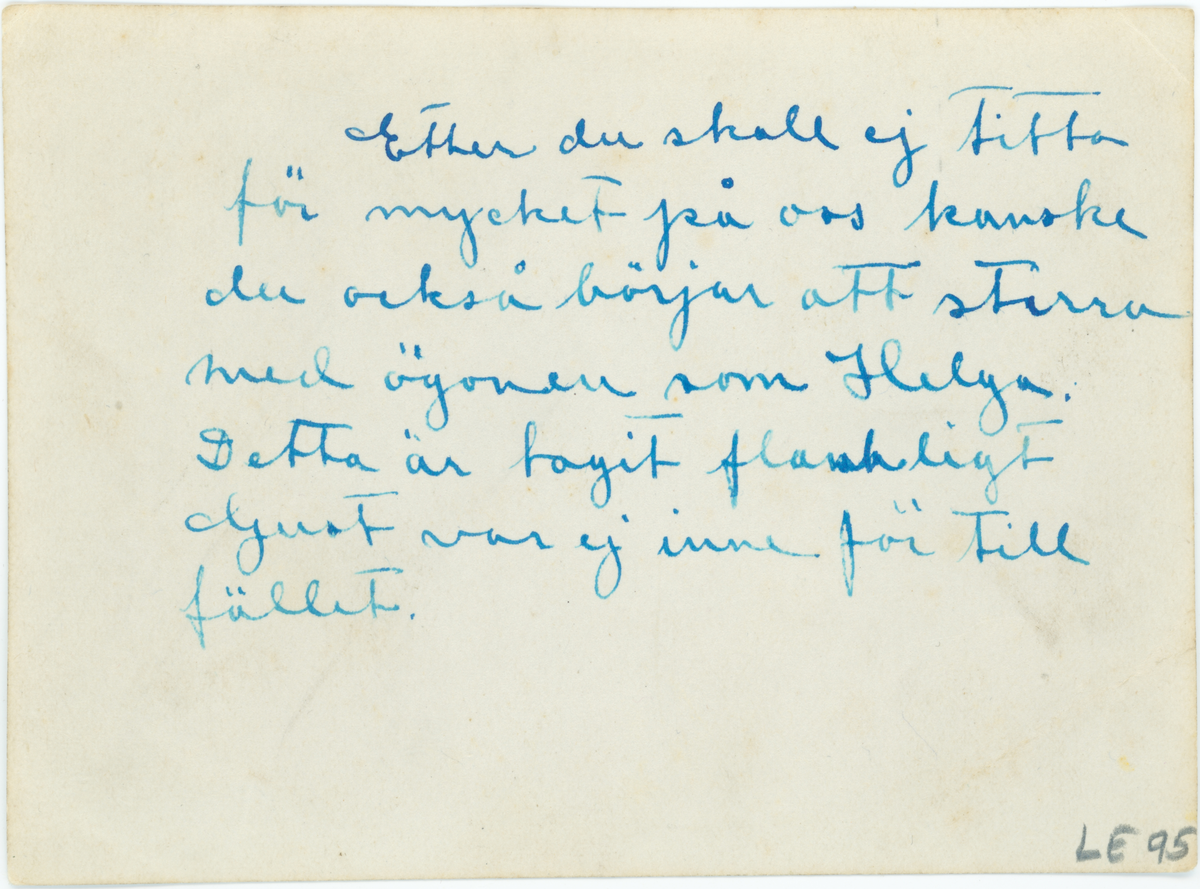 Ether du skall ej titta
för mycket på oss kanske
du också börjar att stirra
med ögonen som Helga.
Detta är tagit flankligt
Gust var ej inne för till
fället.
LE 95